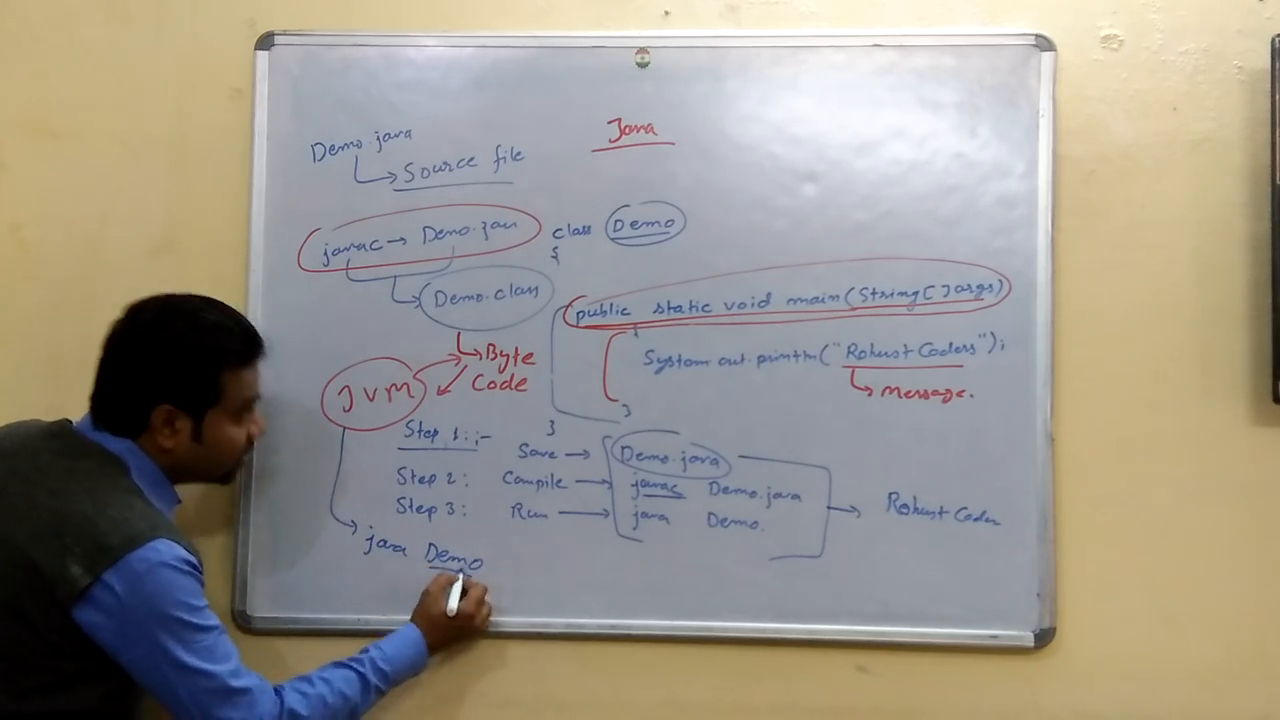 Java
Demo.java
Source file
javac → Demo.java
Demo.class
Byte
Code
JVM
class Demo
{
public static void main(String[] args)
{
System.out.println("Robust Coders");
message.
}
}
Step 1:- Save → Demo.java
Step 2: Compile → javac Demo.java
Step 3: Run → java Demo.
Robust Coder
java Demo